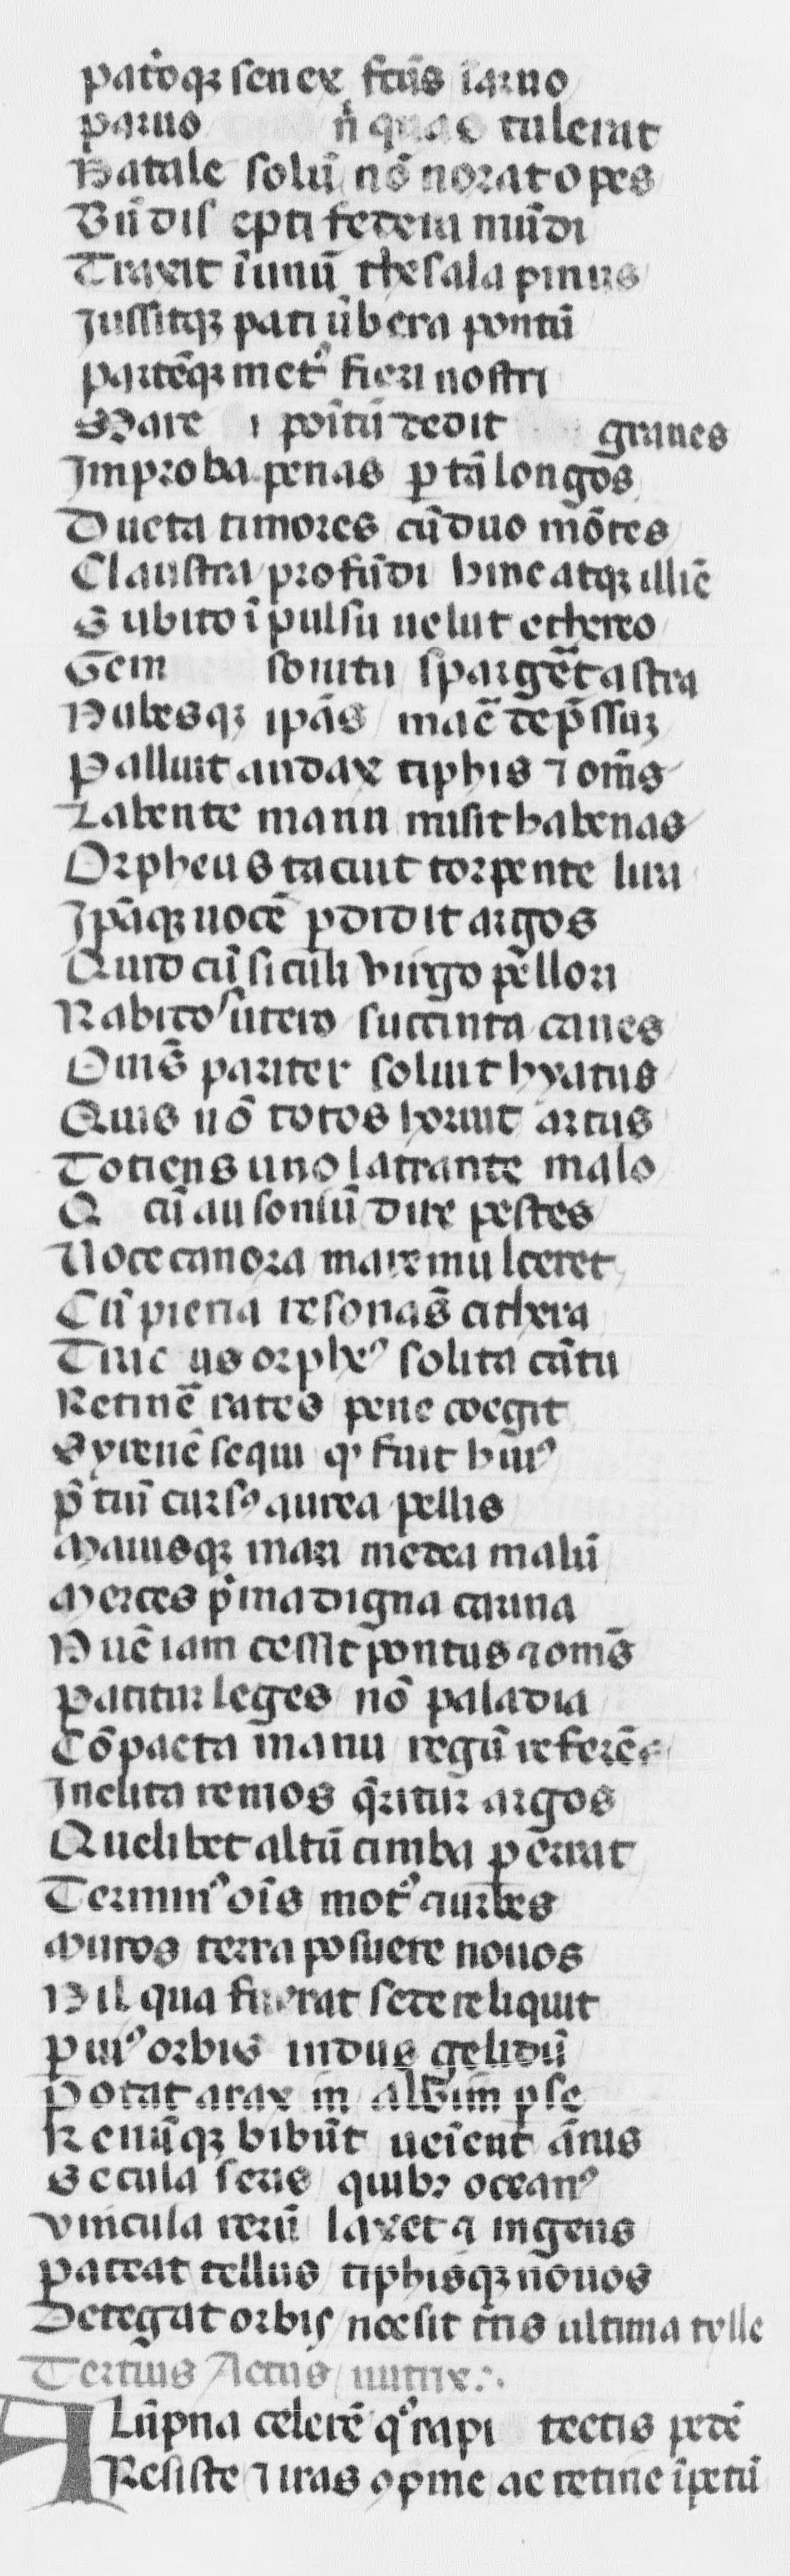 patoqꝫ senex fcūs ī aruo
paruo ñ quas tulerat
Natale solū nō norat opes
Bñ dis epti federa mūdi
Traxit ī unū thesala pinus
Jussitqꝫ pati ūbera pontū
partēqꝫ metꝰ fieri nostri
Mare poītū dedit graues
Improba penas ꝑ tā longos
Ducta timores cū duo mōtes
Claustra profūdi hinc atqꝫ illīc
Subito īpulsu uelut ethereo
Gem sonitu spargēt astra
Nubesqꝫ ipās mare dep̄ssuꝫ
Palluit audax tiphis ⁊ om̄s
Labente manu misit habenas
Orpheus tacuit torpente lira
Ipāqꝫ uocē ꝑdidit argos
Quid cū siculi uirgo pellori
Rabidoˢ utero succinta canes
Omīs pariter soluit hyatus
Quis nō totos horruit artus
Totiens uno latrante malo
Q cū ausoniū dire pestes
Uoce canora mare mulceret
Cū pieria resonās cithera
Trac us orpheꝰ solita cātu
Retinē rates pene coegit
Syrenē sequi qͥ fuit huiꝰ
p̄ciū cursꝰ aurea pellis
Maiusqꝫ mari medea malū
Merces p̍ma digna carina
Nūc iam cessit pontus ⁊ om̄s
Patitur leges nō paladia
Cōpacta manu regū referēs
Inclita remos q̄ritur argos
Quelibet altū cimba ꝑerrat
Terminꝰ oīs motꝰ ⁊ urbes
Muros terra posuere nouos
Nil qua fuerat sede reliquit
ꝑuiꝰ orbis indus gelidū
Potat arax in albim ꝑse
Renūqꝫ bibūt ueīent ānis
Secula seris quibꝫ oceanꝰ
Vincula rerū laxet ⁊ ingens
Pateat tellus tiphisqꝫ nouos
Detegat orbis nec sit tris ultima tylle
Tertius Actus nutrix
Alūpna celerē qͦ rapi tectis pedē
Resiste ⁊ iras ꝯprime ac retine īpetū